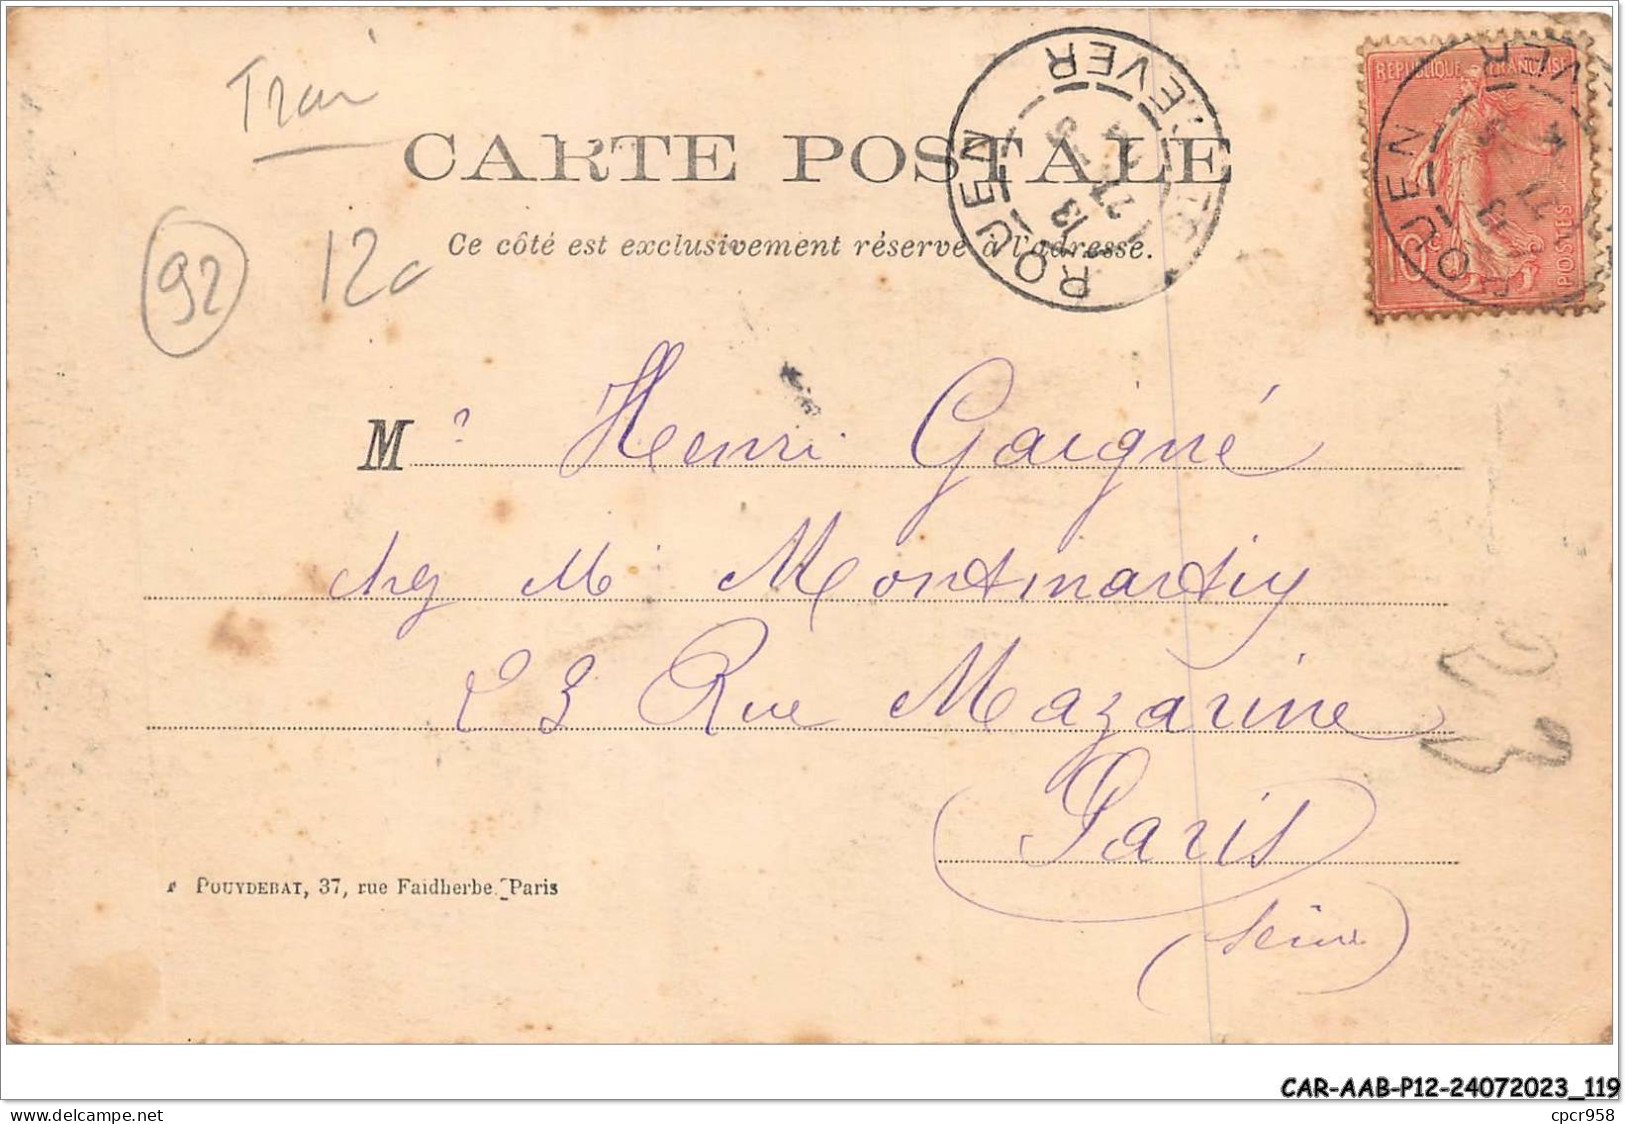 Train
CARTE POSTALE
Ce côté est exclusivement réservé à l'adresse.
ROUEN
13
RÉPUBLIQUE FRANÇAISE
POSTES
10c
ROUEN
92
12c
Mr Henri Gaigné
chez Mr Montmartin
23 Rue Mazarine
Paris
(Seine)
23
POUYDEBAT, 37, rue Faidherbe. Paris
CAR-AAB-P12-24072023_119
www.delcampe.net
cpcr958